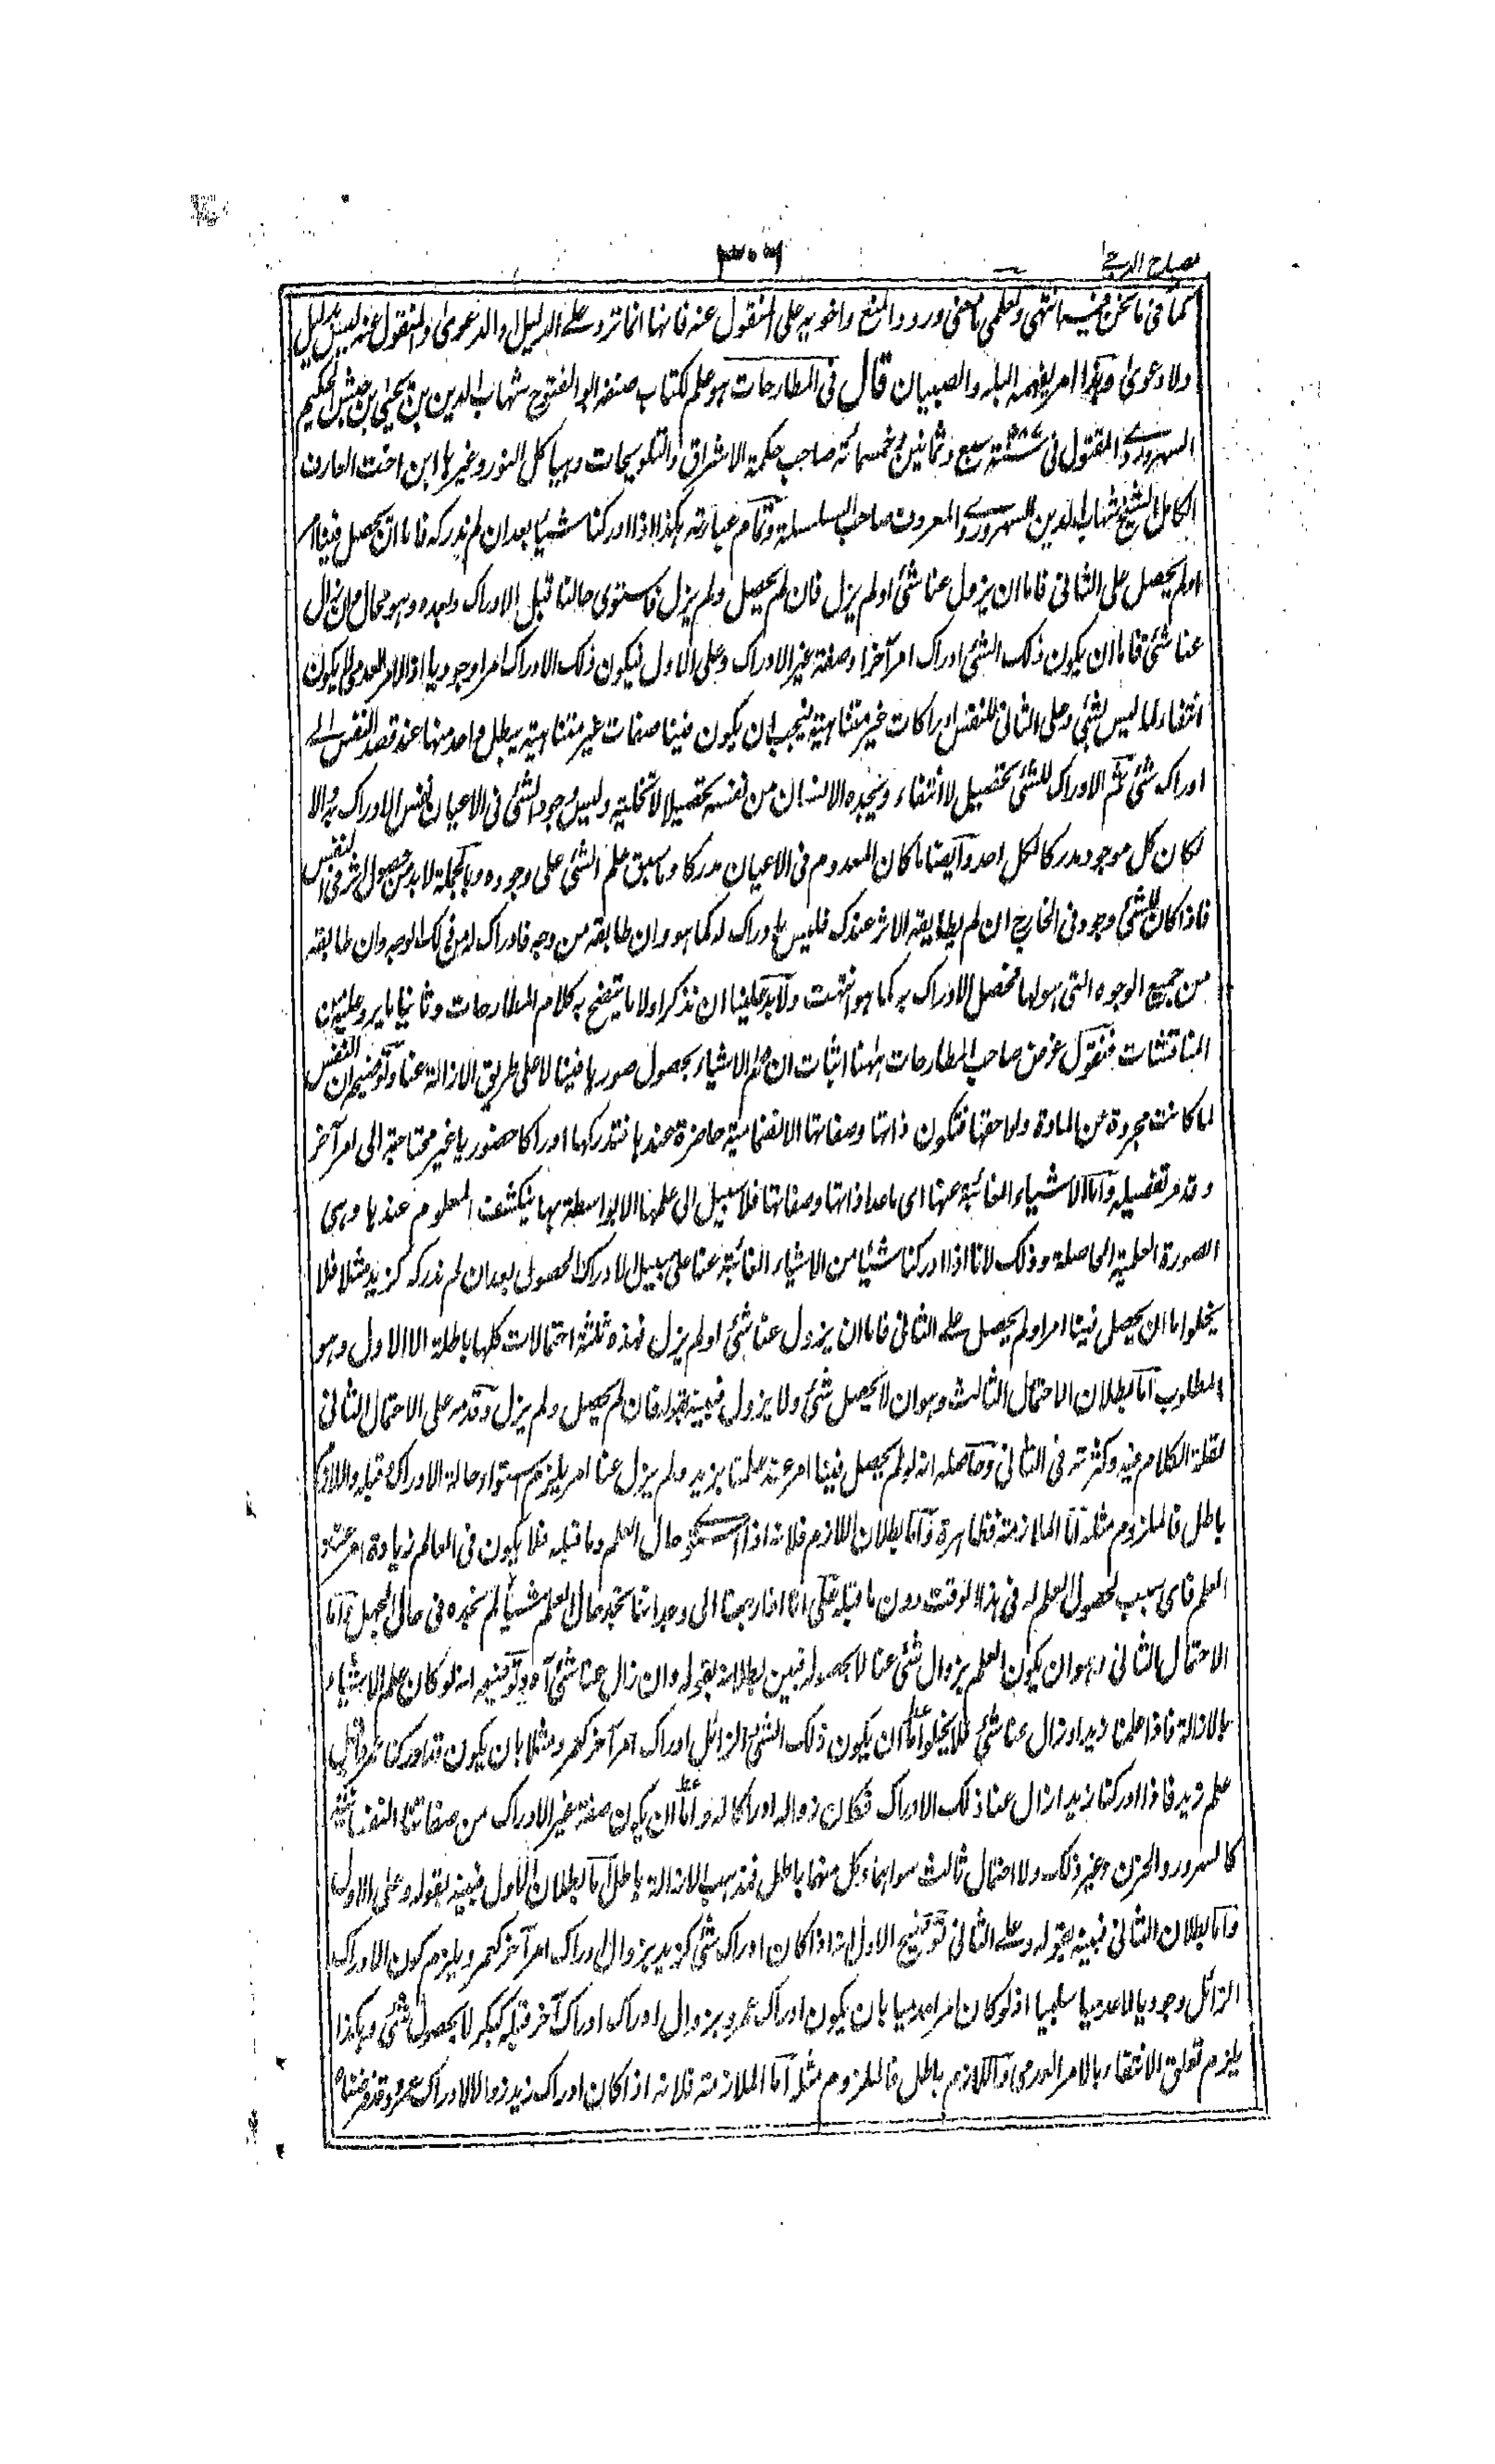 مصباح الدجى
٣٠٦
كما فى ما نحن فيه انتهى ولعلمى ما معنى ورود المنع واخويه على المنقول عنه فانها انما ترد على الدليل والدعوى والمنقول عنه ليس بدليل
ولا دعوى وهذا امر يفهمه البله والصبيان قال فى المطارحات هو علم لكتاب صنفه ابو الفتوح شهاب الدين بن يحيى بن حبش الحكيم
السهروردى المقتول فى سنة سبع وثمانين وخمسمائة صاحب حكمة الاشراق والتلويحات وهياكل النور وغيرها ابن اخت العارف
الكامل الشيخ شهاب الدين السهروردى المعروف صاحب السلسلة وتمام عبارته هكذا اذا ادركنا شيئا بعد ان لم ندركه فاما ان يحصل فينا امر
او لم يحصل على الثانى فاما ان يزول عنا شئ او لم يزل فان لم يحصل ولم يزل فاستوى حالنا قبل الادراك وبعده وهو محال وان زال
عنا شئ فاما ان يكون ذلك الشئ ادراك امر آخر او صفة غير الادراك وعلى الاول فيكون ذلك الادراك امرا وجوديا اذ الامر العدمى لا يكون
انتفاء لما ليس بشئ وعلى الثانى للنفس ادراكات غير متناهية فيجب ان يكون فينا صفات غير متناهية يبطل واحد منها عند قصد النفس الى
ادراك شئ ثم الادراك للشئ تحصيل لا انتفاء ويجده الانسان من نفسه تحصيلا لا تخلية وليس وجود الشئ فى الاعيان نفس الادراك به والا
لكان كل موجود مدركا لكل احد وايضا ما كان المعدوم فى الاعيان مدركا وما سبق علم الشئ على وجوده وبالجملة لا بد من حصول اثر فى النفس
فاذا كان للشئ وجود فى الخارج ان لم يطابقه الاثر عندك فليس بادراك له كما هو وان طابقه من وجه فادراك له من ذلك الوجه وان طابقه
من جميع الوجوه التى هو لها فحصل الادراك به كما هو انتهت ولا بد علينا ان نذكر اولا ما يتضح به كلام المطارحات وثانيا ما يرد عليه من
المناقشات فنقول غرض صاحب المطارحات ههنا اثبات ان علم الاشياء بحصول صورها فينا لا على طريق الازالة عنا وتوضيحه ان النفس
لما كانت مجردة عن المادة ولواحقها فتكون ذاتها وصفاتها الانضمامية حاضرة عندها فتدركها ادراكا حضوريا غير محتاجة الى امر آخر
وقد مر تفصيله واما الاشياء الغائبة عنها اى ما عدا ذاتها وصفاتها فلا سبيل الى علمها الا بواسطة بها ينكشف المعلوم عندها وهى
الصورة العلمية الحاصلة وذلك لانا اذا ادركنا شيئا من الاشياء الغائبة عنا على سبيل الادراك الحصول بعد ان لم ندركه كزيد مثلا فلا
يخلو اما ان يحصل فينا امر او لم يحصل على الثانى فاما ان يزول عنا شئ او لم يزل فهذه ثلثة احتمالات كلها باطلة الا الاول وهو
المطلوب اما بطلان الاحتمال الثالث وهو ان لا يحصل شئ ولا يزول فبينه بقوله فان لم يحصل ولم يزل وقدمه على الاحتمال الثانى
لقلة الكلام فيه وكثرته فى الثانى وحاصله انه لو لم يحصل فينا امر عند علمنا بزيد ولم يزل عنا امر يلزم استواء حالة الادراك وقبله واللازم
باطل فالملزوم مثله اما الملازمة فظاهرة واما بطلان اللازم فلانه اذا استوى حال العلم وما قبله فلا يكون فى العالم زيادة امر عند
العلم فاى سبب لحصول العلم له فى هذا الوقت دون ما قبله على انا اذا رجعنا الى وجداننا نجد حال العلم شيئا لم نجده فى حال الجهل واما
الاحتمال الثانى وهو ان يكون العلم بزوال شئ عنا لا بحصوله فبين بطلانه بقوله وان زال عنا شئ آه وتوضيحه انه لو كان علم الاشياء
بالازالة فاذا علمنا زيدا وزال عنا شئ فلا يخلو اما ان يكون ذلك الشئ الزائل ادراك امر آخر كعمرو مثلا بان يكون قد ادركنا عمرا قبل
علم زيد فاذا ادركنا زيدا زال عنا ذلك الادراك فكان زواله ادراكا له واما ان يكون صفة غير الادراك من صفاتنا النفسانية
كالسرور والحزن وغير ذلك ولا احتمال ثالث سواهما وكل منهما باطل فمذهب الازالة باطل اما بطلان الاول فبينه بقوله وعلى الاول
واما بطلان الثانى فبينه بقوله وعلى الثانى توضيح الاول انه اذا كان ادراك شئ كزيد بزوال ادراك امر آخر كعمرو يلزم كون الادراك
الزائل وجوديا لا عدميا سلبيا اذ لو كان امرا عدميا بان يكون ادراك عمرو بزوال ادراك آخر قبله كبكر لا بحصول شئ وهكذا
يلزم تعلق الانتفاء بالامر العدمى واللازم باطل فالملزوم مثله اما الملازمة فلانه اذا كان ادراك زيد زوالا لادراك عمرو وقد فرضناه